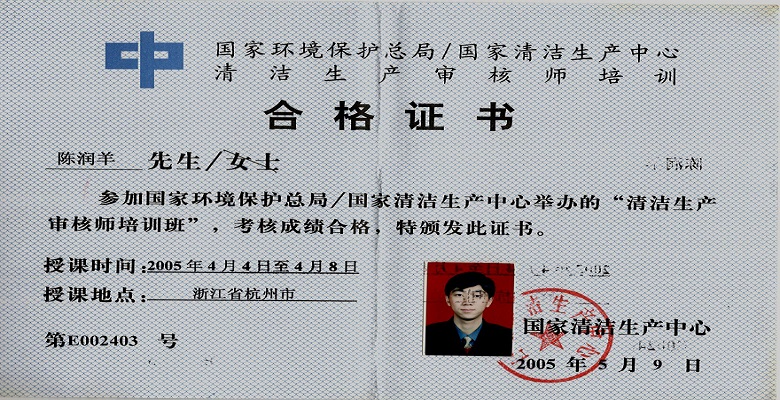 国家环境保护总局/国家清洁生产中心
清洁生产审核师培训
合格证书
陈润羊 先生/女士
参加国家环境保护总局/国家清洁生产中心举办的“清洁生产
审核师培训班”，考核成绩合格，特颁发此证书。
授课时间：2005年4月4日至4月8日
授课地点： 浙江省杭州市
国家清洁生产中心
第E002403 号
2005 年 5 月 9 日